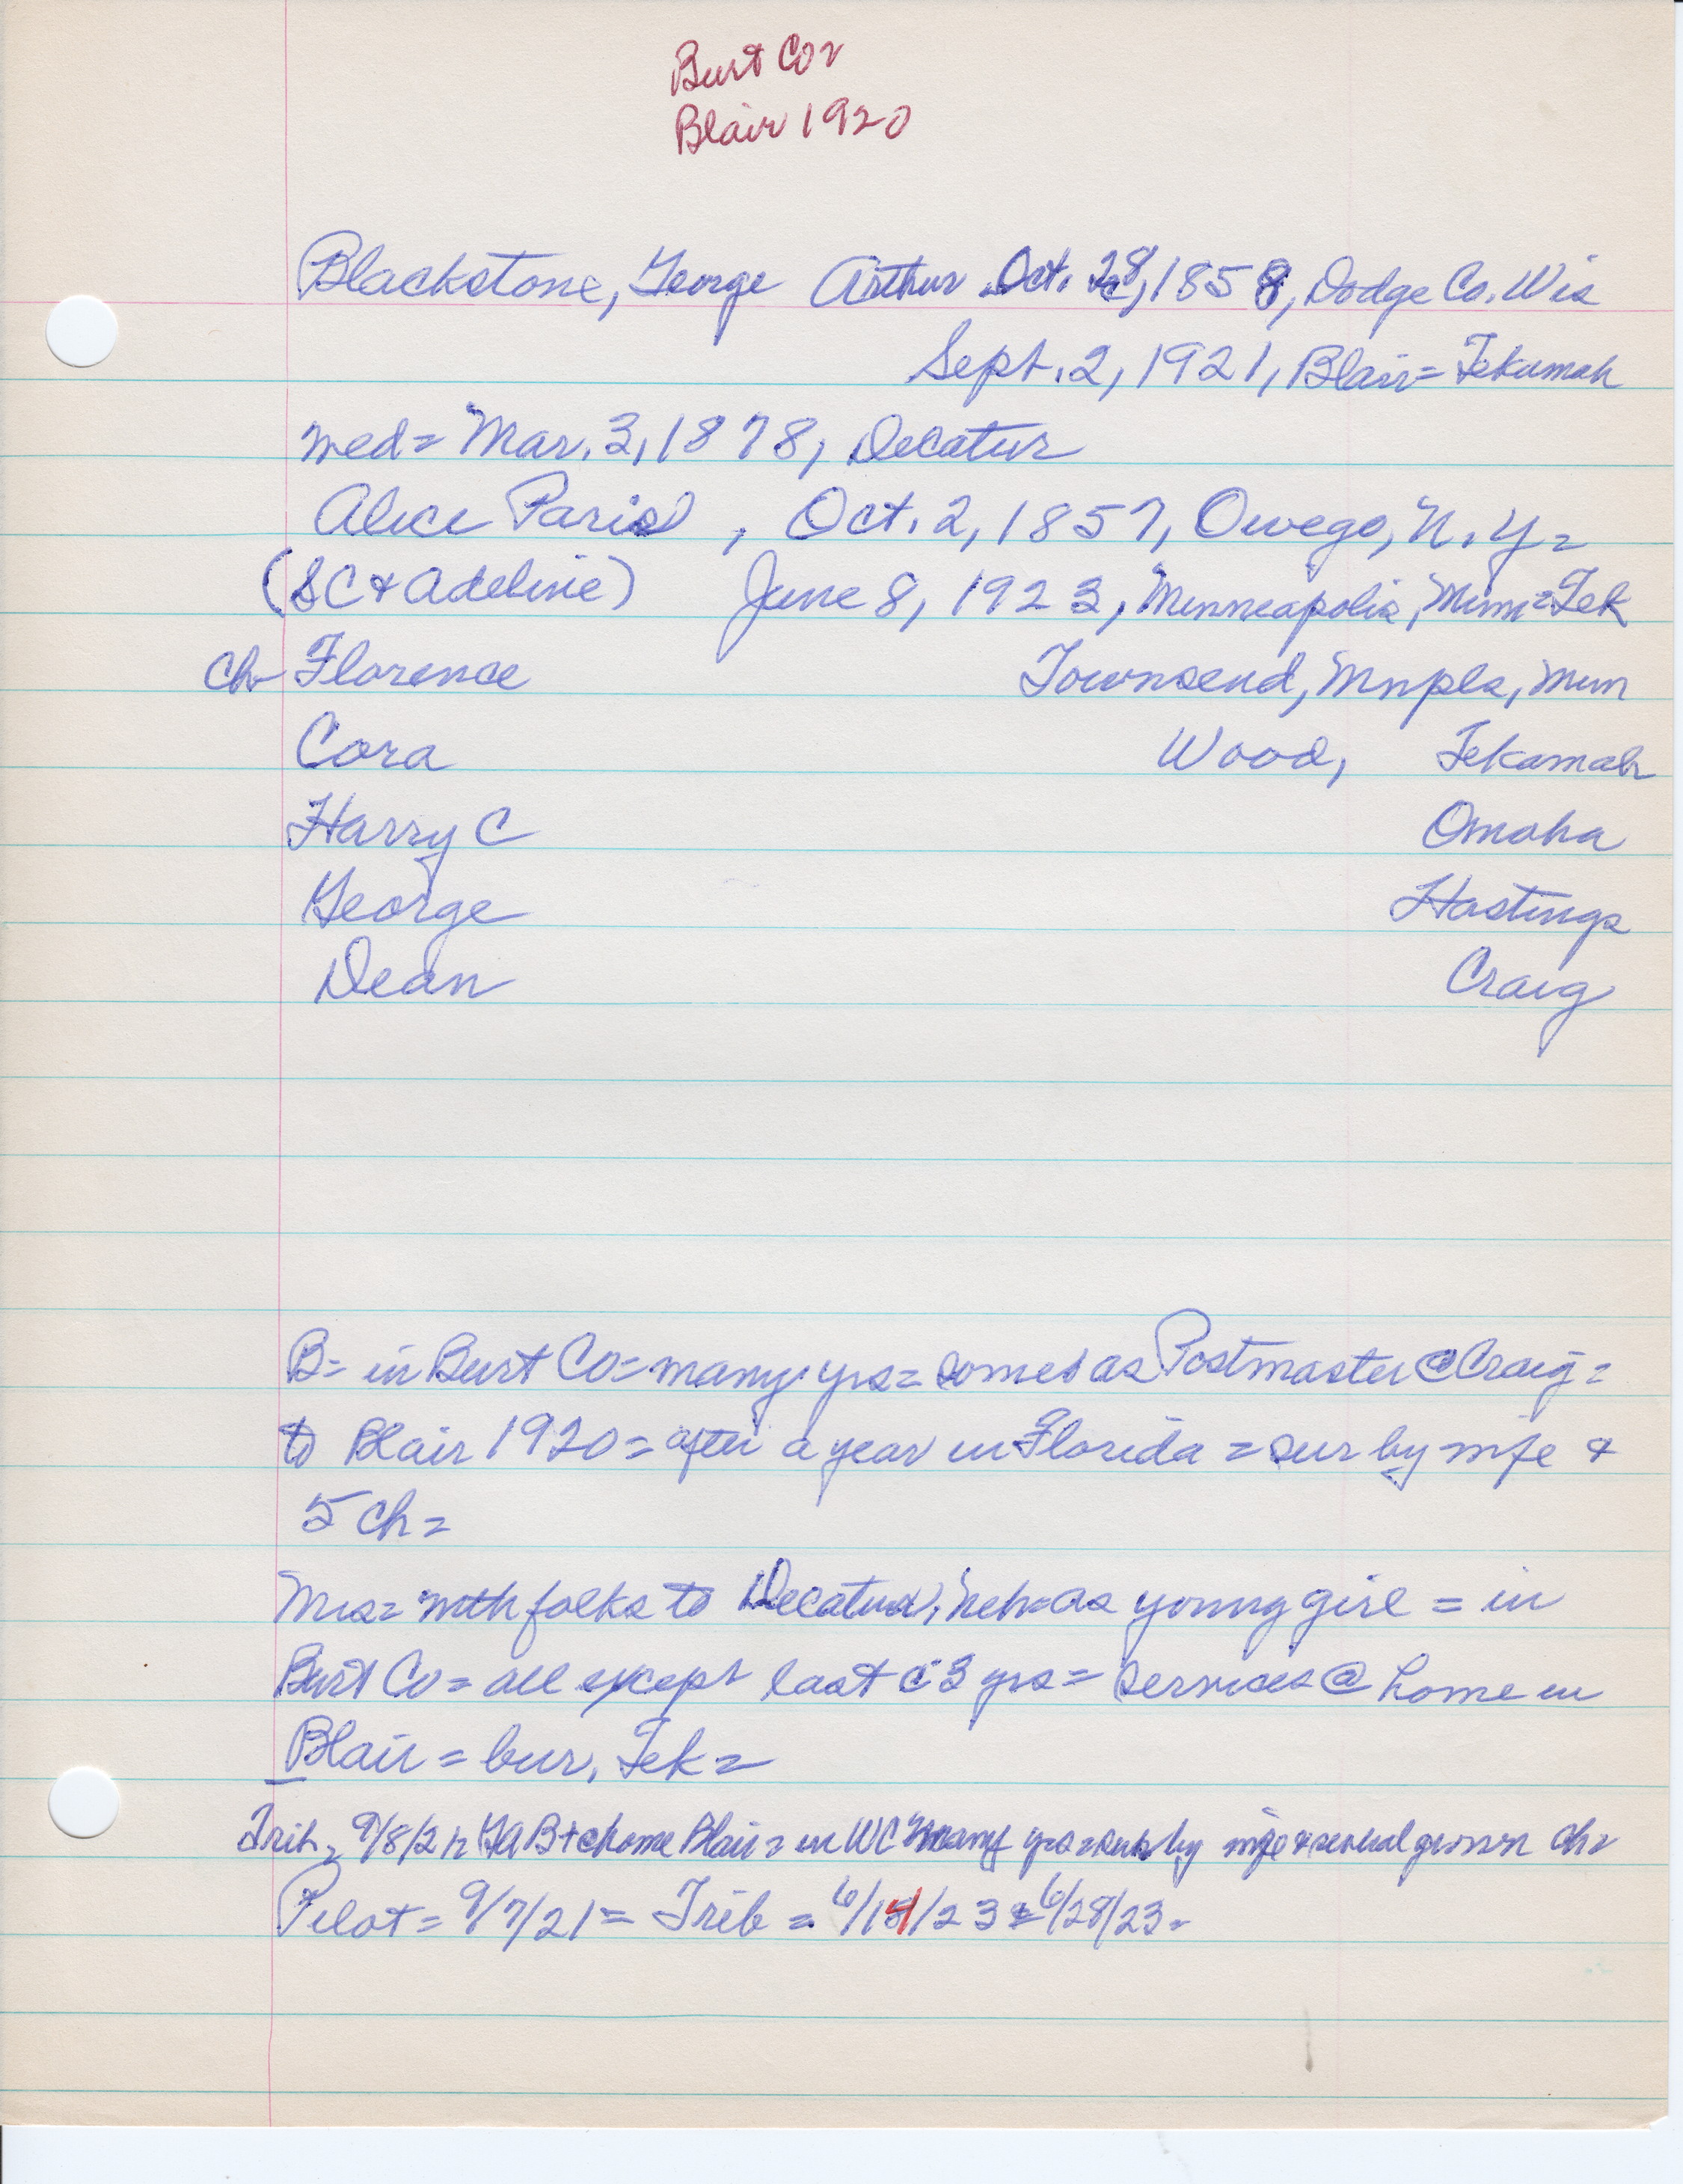 Burt Co=
Blair 1920
Blackstone, George Arthur Oct. 28, 1858, Dodge Co. Wis
Sept. 2, 1921, Blair= Tekamah
med= Mar. 3, 1878, Decatur
Alice Paris , Oct. 2, 1857, Owego, N.Y.=
(SC & Adeline) June 8, 1923, Minneapolis, Minn=Tek
Ch- Florence Townsend, Mnpls, Minn
Cora Wood, Tekamah
Harry C Omaha
George Hastings
Dean Craig
B= in Burt Co= many yrs= some as Postmaster @ Craig=
to Blair 1920= after a year in Florida = sur by wife &
5 ch=
Mrs= with folks to Decatur, Neb=as young girl = in
Burt Co= all except last c 3 yrs= services @ home in
Blair = bur, Tek=
Trib= 9/8/21= GA B+ @ home Blair= in WC many yrs=sur by wife & several grown ch=
Pilot= 9/7/21= Trib = 6/14/23 = 6/28/23=